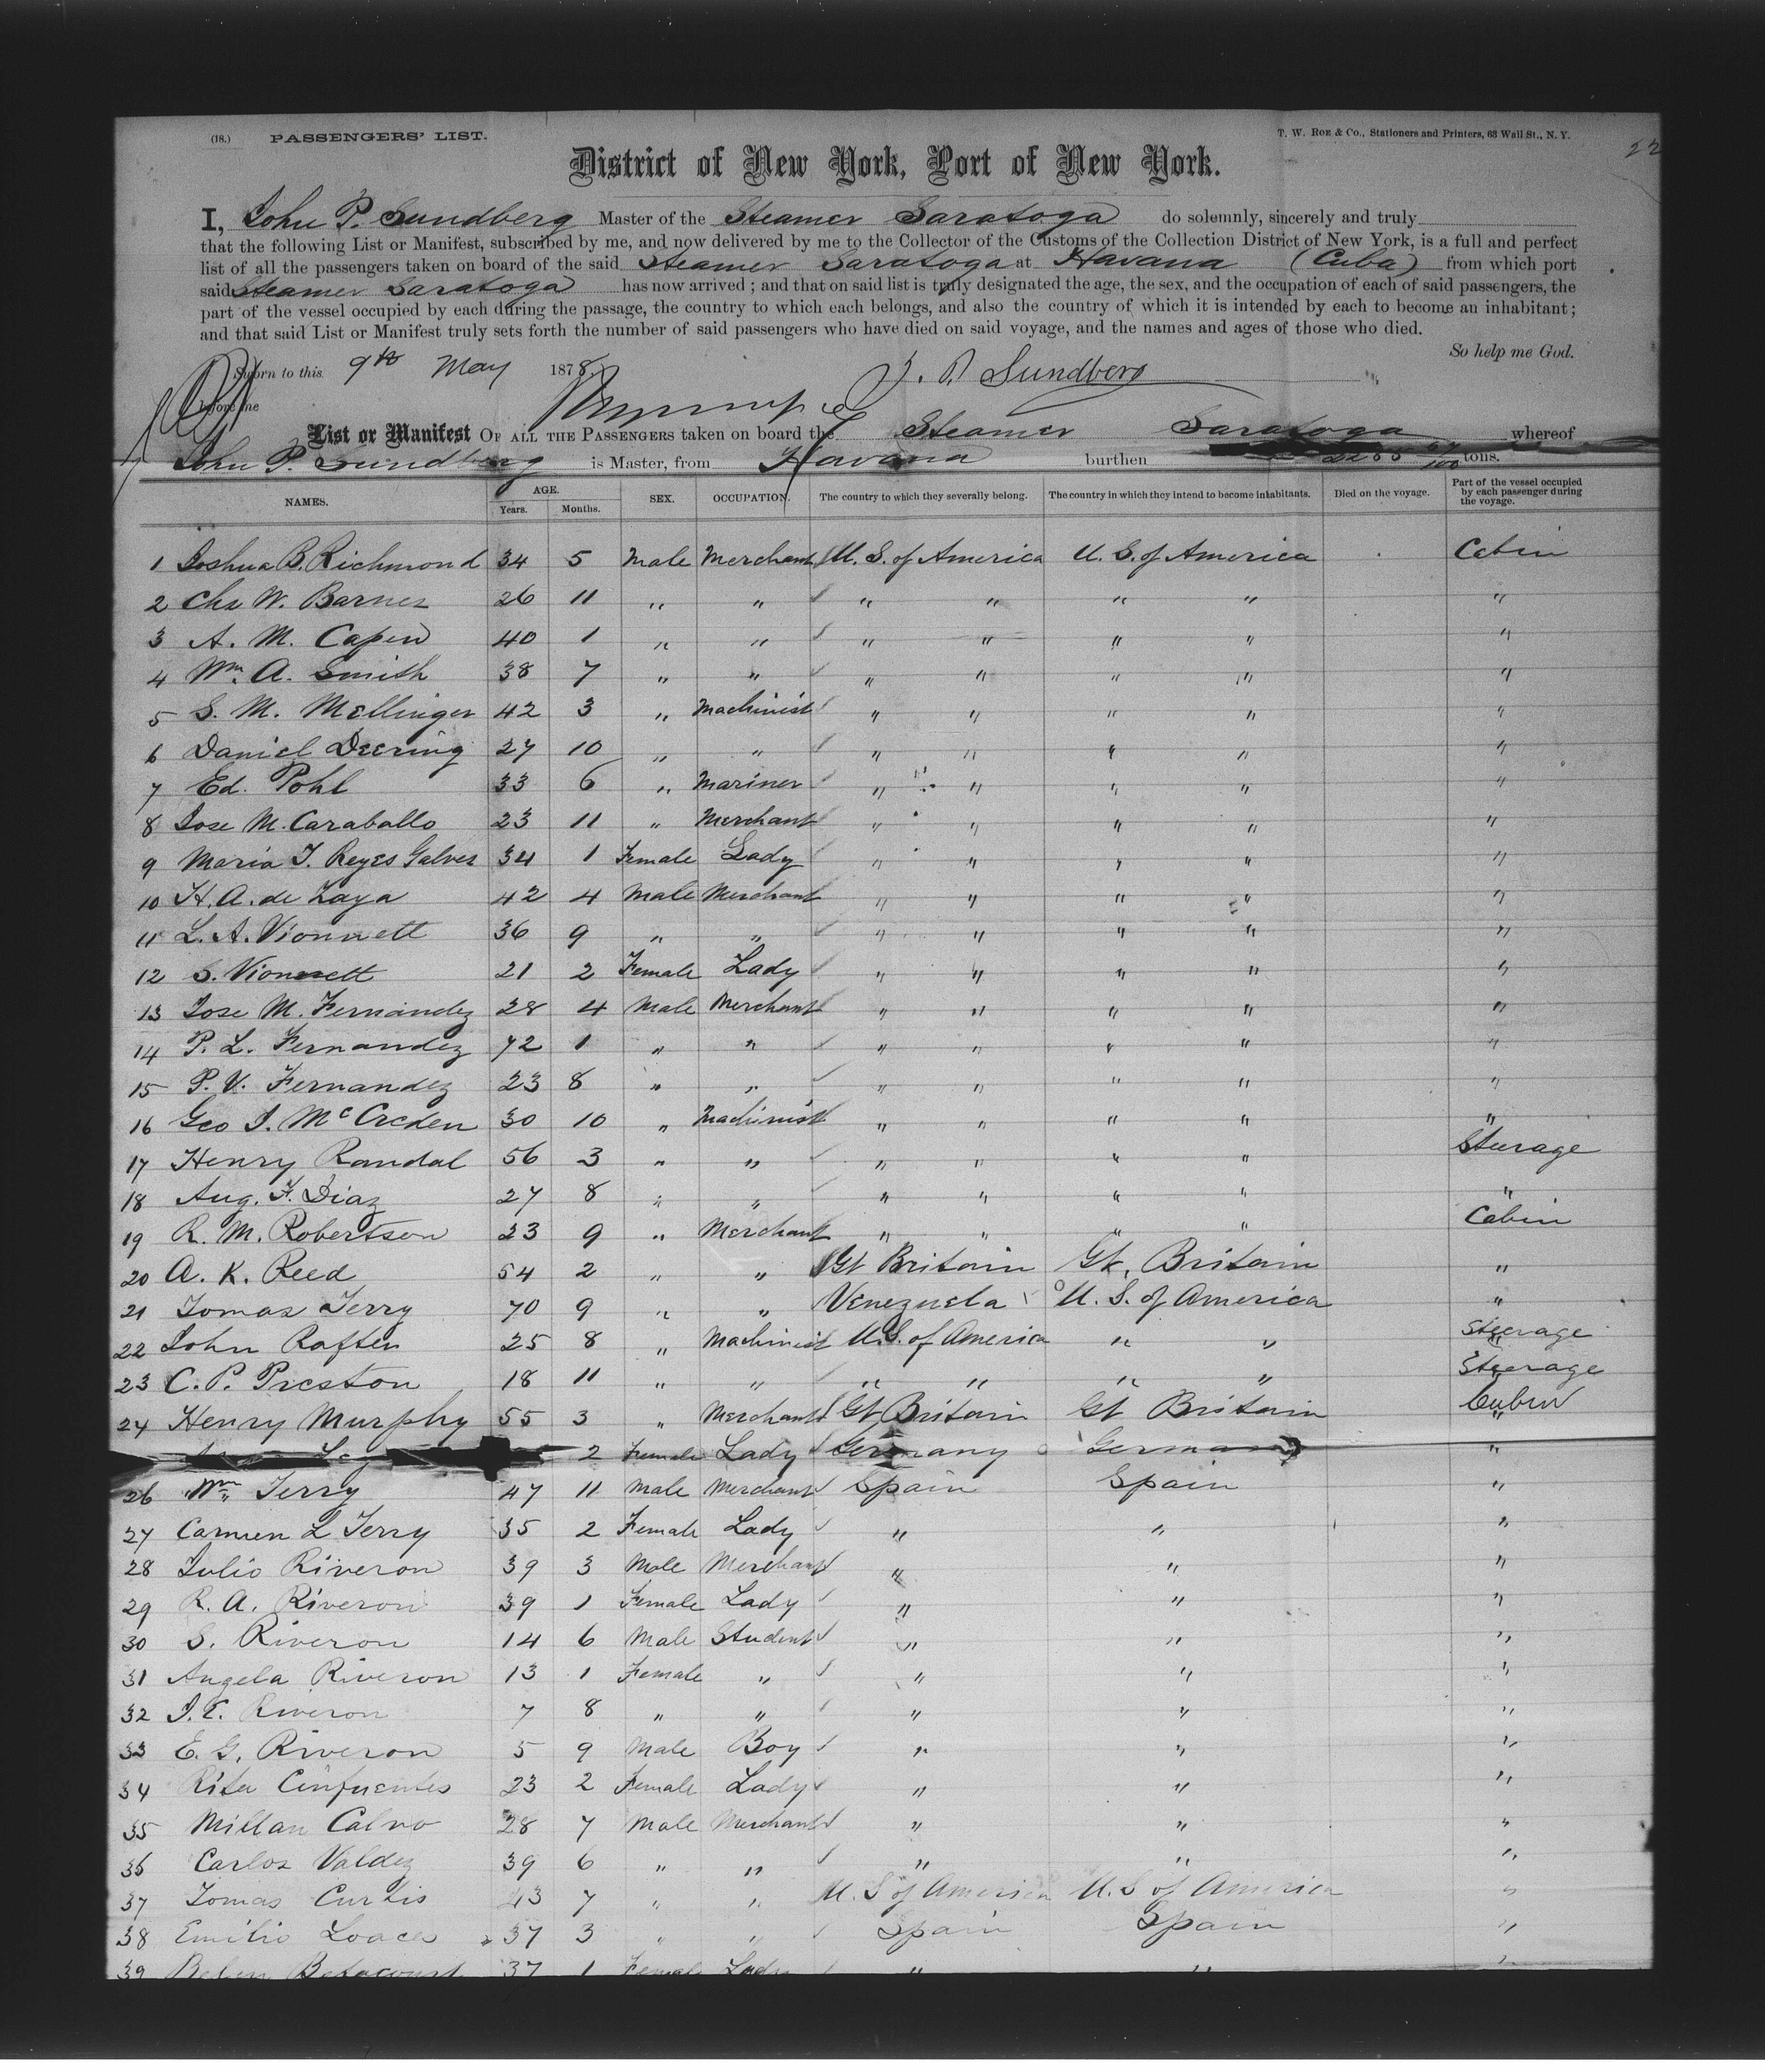 (18.) PASSENGERS' LIST. T. W. Roe & Co., Stationers and Printers, 63 Wall St., N. Y.
22
District of New York, Port of New York.
I, John P. Sundberg Master of the Steamer Saratoga do solemnly, sincerely and truly
that the following List or Manifest, subscribed by me, and now delivered by me to the Collector of the Customs of the Collection District of New York, is a full and perfect
list of all the passengers taken on board of the said Steamer Saratoga at Havana (Cuba) from which port
said Steamer Saratoga has now arrived; and that on said list is truly designated the age, the sex, and the occupation of each of said passengers, the
part of the vessel occupied by each during the passage, the country to which each belongs, and also the country of which it is intended by each to become an inhabitant;
and that said List or Manifest truly sets forth the number of said passengers who have died on said voyage, and the names and ages of those who died.
So help me God.
Sworn to this 9th May 1878 J. P. Sundberg
before me
List or Manifest OF ALL THE PASSENGERS taken on board the Steamer Saratoga whereof
John P. Sundberg is Master, from Havana burthen tons.
NAMES. AGE. Years. Months. SEX. OCCUPATION. The country to which they severally belong. The country in which they intend to become inhabitants. Died on the voyage. Part of the vessel occupied by each passenger during the voyage.
1 Joshua B. Richmond 34 5 Male Merchant U. S. of America U. S. of America Cabin
2 Chs W. Barnes 26 11 " " " " " " "
3 A. M. Capen 40 1 " " " " " " "
4 Wm. A. Smith 38 7 " " " " " " "
5 S. M. Mellinger 42 3 " Machinist " " " " "
6 Daniel Deering 27 10 " " " " " " "
7 Ed. Pohl 33 6 " Mariner " " " " "
8 Jose M. Caraballo 23 11 " Merchant " " " " "
9 Maria J. Reyes Galves 34 1 Female Lady " " " " "
10 H. A. de Zaya 42 4 Male Merchant " " " " "
11 L. A. Vionnett 36 9 " " " " " " "
12 S. Vionnett 21 2 Female Lady " " " " "
13 Jose M. Fernandez 28 4 Male Merchant " " " " "
14 P. L. Fernandez 72 1 " " " " " " "
15 P. V. Fernandez 23 8 " " " " " " "
16 Geo J. McCreden 30 10 " Machinist " " " " "
17 Henry Randal 56 3 " " " " " " Sturage
18 Aug. F. Diaz 27 8 " " " " " " "
19 R. M. Robertson 23 9 " Merchant " " " " Cabin
20 A. K. Reed 54 2 " " Gt Britain Gt. Britain "
21 Tomas Terry 70 9 " " Venezuela U. S. of America "
22 John Raften 25 8 " Machinist U. S. of America " " Steerage
23 C. P. Preston 18 11 " " " " " " Steerage
24 Henry Murphy 55 3 " Merchant Gt Britain Gt Britain Cabin
2 Female Lady Germany Germany "
26 Wm Terry 47 11 Male Merchant Spain Spain "
27 Carmen L Terry 35 2 Female Lady " " "
28 Julio Riveron 39 3 Male Merchant " " "
29 R. A. Riveron 39 1 Female Lady " " "
30 S. Riveron 14 6 Male Student " " "
31 Angela Riveron 13 1 Female " " " "
32 J. C. Riveron 7 8 " " " " "
33 E. G. Riveron 5 9 Male Boy " " "
34 Rita Cinfuentes 23 2 Female Lady " " "
35 Millan Calvo 28 7 Male Merchant " " "
36 Carlos Valdez 39 6 " " " " "
37 Tomas Curtis 43 7 " " U. S of America U. S of America "
38 Emilio Loaces 37 3 " " Spain Spain "
39 Belen Betacourt 37 1 Female Lady " " "